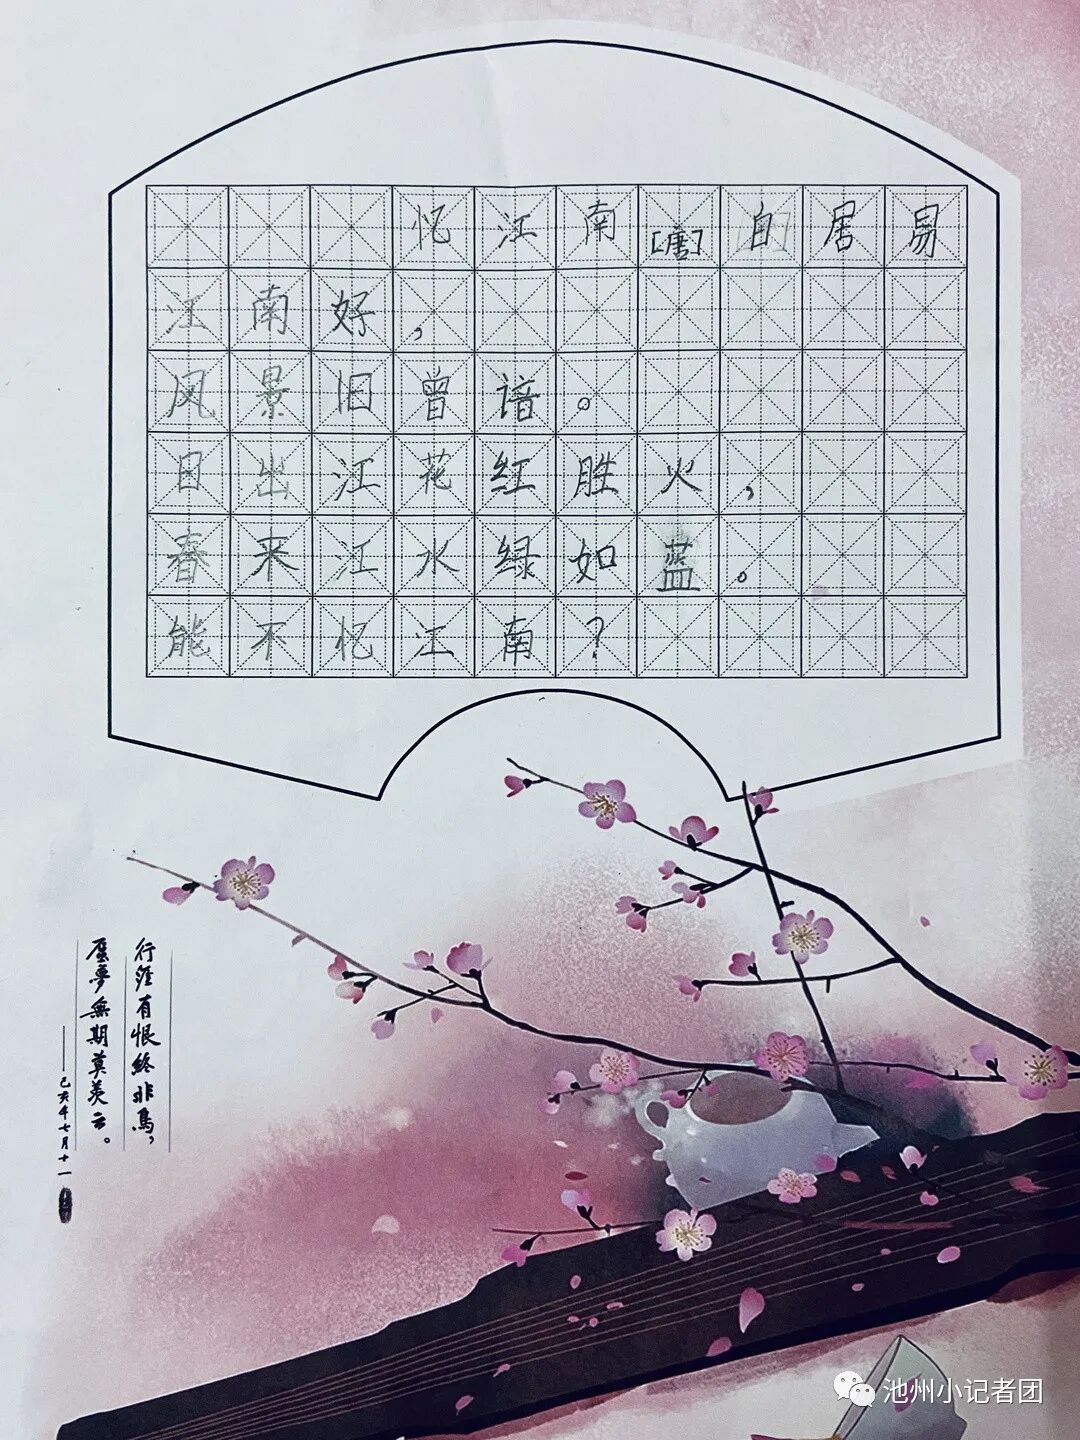 忆江南[唐]自居易
江南好，
风景旧曾谙。
目出江花红胜火，
春来江水绿如蓝。
能不忆江南？
行 有恨終非鳥，
蜃夢無期莫羡云。
——己亥年七月十一
池州小记者团